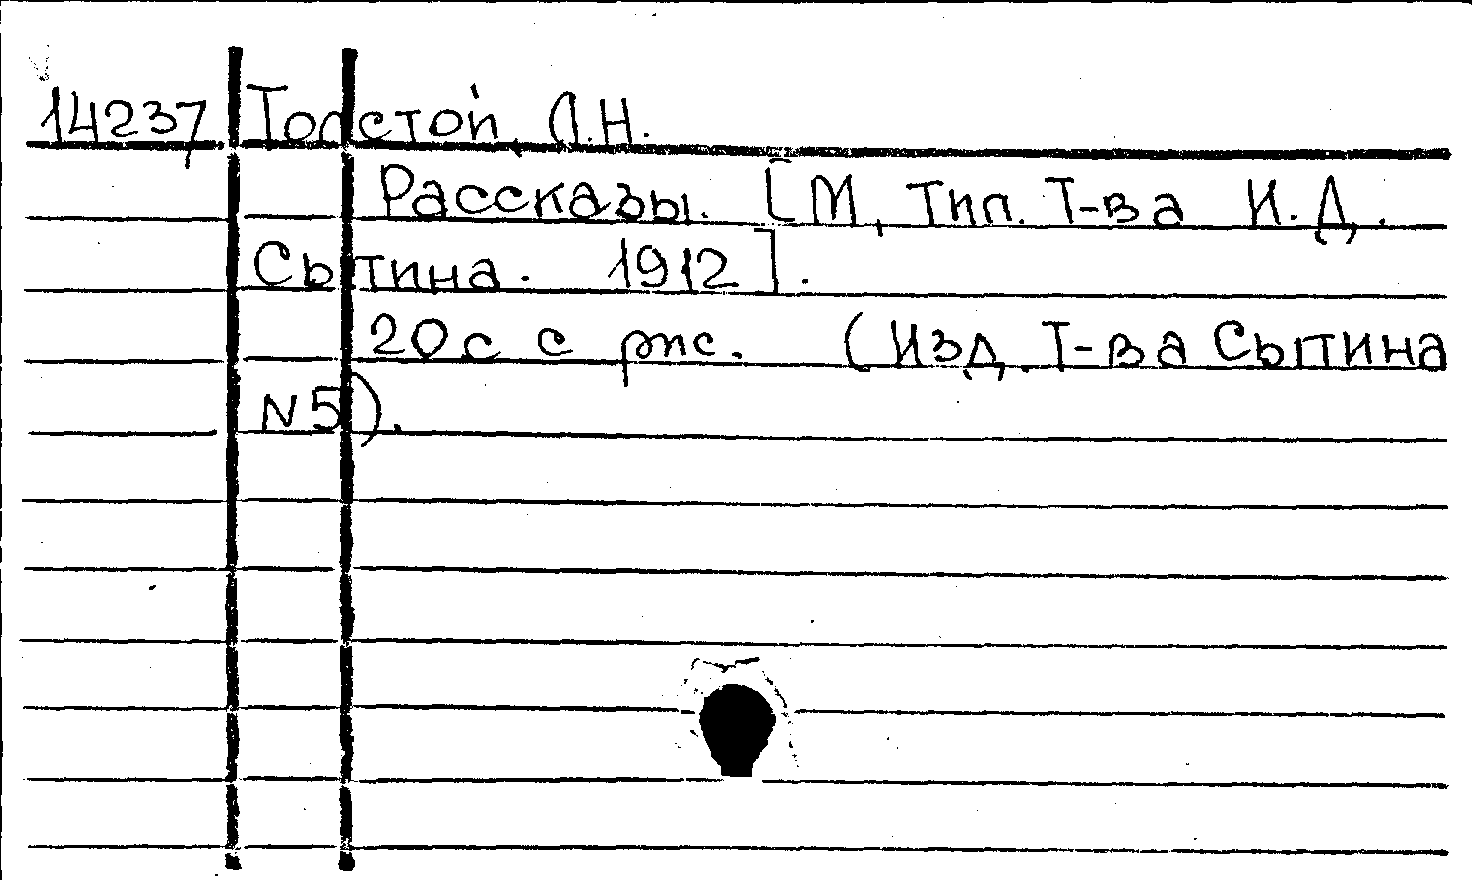 14237 Толстой, Л.Н.
Рассказы. [М, тип. Т-ва И. Д.
Сытина. 1912].
20 с с рис. (Изд. Т-ва Сытина
N5).